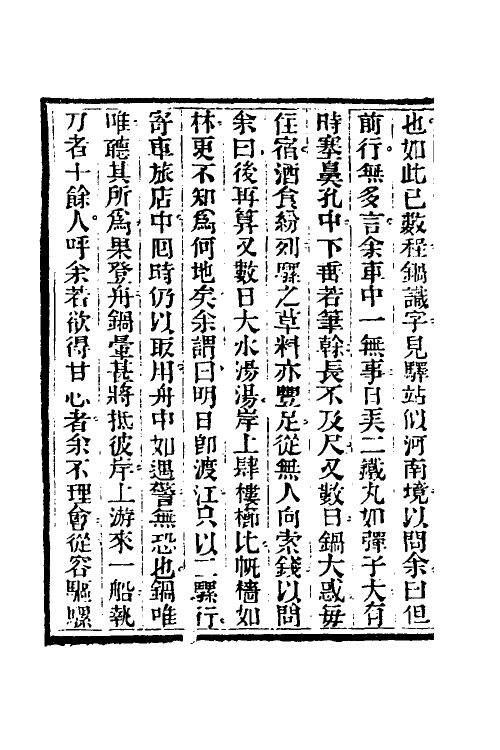 也如此已數程鍋識字見驛站似河南境以問余曰但
前行無多言余車中一無事日弄二鐵丸如彈子大有
時塞鼻孔中下垂若筆幹長不及尺又數日鍋大惑每
住宿酒食紛列騾之草料亦豐足從無人向索錢以問
余曰後再算又數日大水湯湯岸上肆樓櫛比帆檣如
林更不知為何地矣余謂曰明日卽渡江只以二騾行
寄車旅店中囘時仍以取用舟中如遇警無恐也鍋唯
唯聽其所為果登舟鍋暈甚將抵彼岸上游來一船執
刀者十餘人呼余若欲得甘心者余不理會從容驅騾